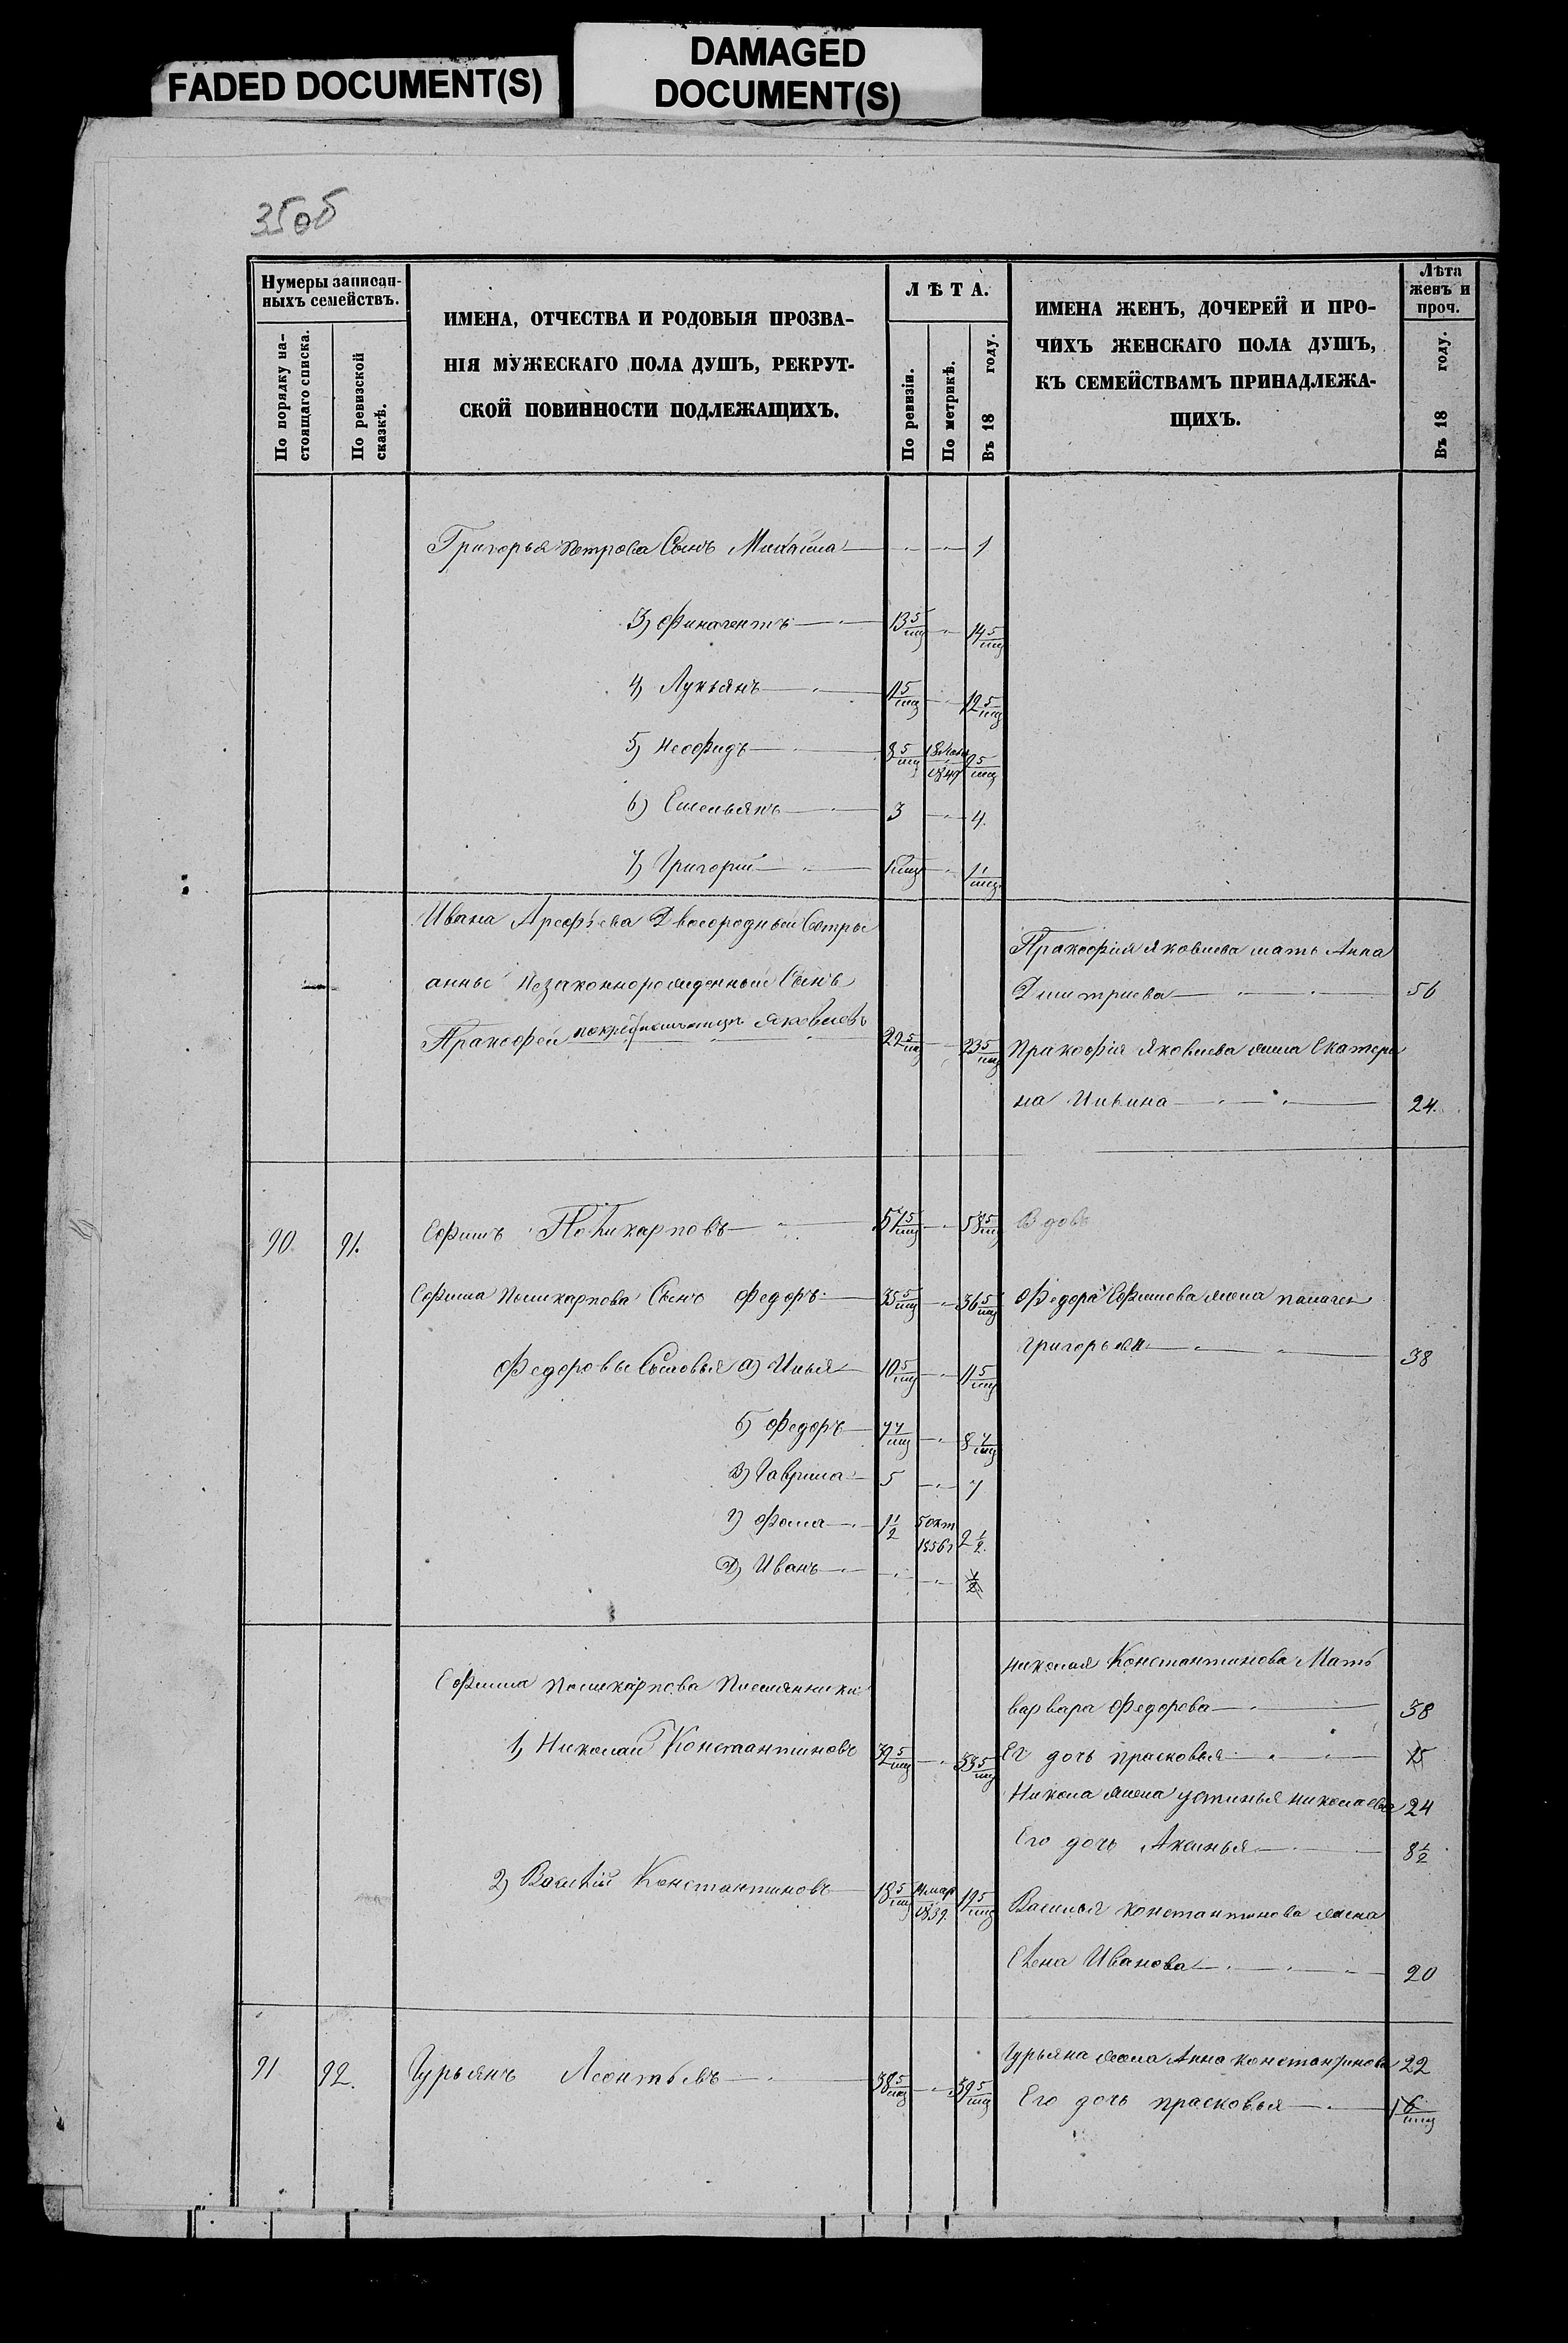 FADED DOCUMENT(S)
DAMAGED
DOCUMENT(S)
350б
Нумеры записан-
ныхъ семействъ.
По порядку на-
стоящаго списка.
По ревизской
сказкѣ.
ИМЕНА, ОТЧЕСТВА И РОДОВЫЯ ПРОЗВА-
НІЯ МУЖЕСКАГО ПОЛА ДУШЪ, РЕКРУТ-
СКОЙ ПОВИННОСТИ ПОДЛЕЖАЩИХЪ.
ЛѢТА.
По ревизіи.
По метрикѣ.
Въ 18 году.
ИМЕНА ЖЕНЪ, ДОЧЕРЕЙ И ПРО-
ЧИХЪ ЖЕНСКАГО ПОЛА ДУШЪ,
КЪ СЕМЕЙСТВАМЪ ПРИНАДЛЕЖА-
ЩИХЪ.
Лѣта
женъ и
проч.
Въ 18 году.
Григорья Петрова Сынъ Михайла 1
3) Финагентъ 13 5/мц 14 5/мц
4) Лукьянъ 11 5/мц 12 5/мц
5) Неофидъ 8 5/мц 1849 9 5/мц
6) Емельянъ 3 4.
7) Григорий 1/мц
Ивана Арефьева Двоюродный Сестры
анны Незаконнорожденный Сынъ
Пракофей Яковлевъ 22 5/мц 23 5/мц
Пракофия Яковлева мать Анна
Дмитриева 56
Пракофия Яковлева жена Екатери
на Ильина 24.
90. 91. Ефимъ Поликарповъ 57 5/мц 58 5/мц Вдовъ
Ефима Поликарпова Сынъ Федоръ 35 5/мц 36 5/мц Федора Ефимова жена
Григорьева 38
Федоровы Сыновья а) Илья 10 5/мц 11 5/мц
б) Федоръ 7 7/мц 8 7/мц
в) Гаврила 5 7
г) Фома 1 1/2 5 окт 1856 г 2 1/2.
д) Иванъ 1/2
Ефима Поликарпова Племянники
1) Николай Константиновъ 32 5/мц 33 5/мц
2) Василий Константиновъ 18 5/мц 14 мар 1839. 19 5/мц
Николая Константинова Мать
варвара Федорова 38
Ег дочь прасковья 15
Никола жена устинья николаева 24
Его дочь Аксинья 8 1/2
Василья константинова жена
Елена Иванова 20
91 92. Гурьянъ Леонтьевъ 38 5/мц 39 5/мц
Гурьяна жена Анна константинова 22
Его дочь прасковья 1 6/мц